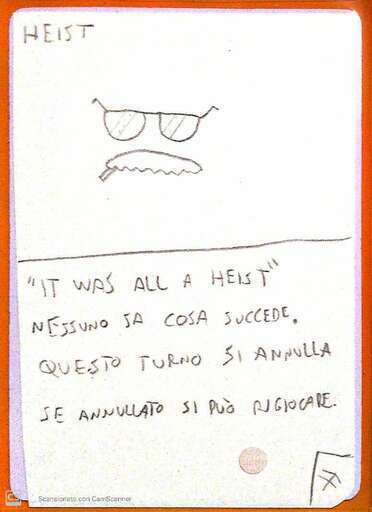 HEIST
"IT WAS ALL A HEIST"
NESSUNO SA COSA SUCCEDE.
QUESTO TURNO SI ANNULLA
SE ANNULLATO SI PUÒ RIGIOCARE.
Scansionato con CamScanner